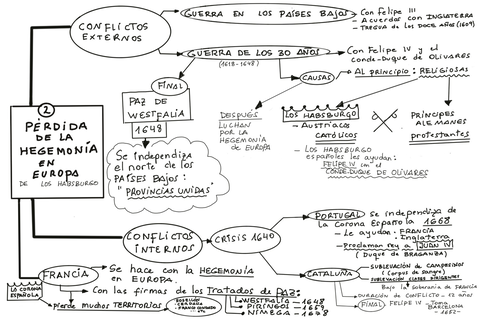 ②
PÉRDIDA
DE LA
HEGEMONÍA
EN
EUROPA
DE LOS HABSBURGO
CONFLICTOS
EXTERNOS
GUERRA EN LOS PAÍSES BAJOS
- Con Felipe III
- Acuerdos con INGLATERRA
- TREGUA DE LOS DOCE AÑOS (1609)
GUERRA DE LOS 30 AÑOS
(1618-1648)
- Con Felipe IV y el
conde-Duque de OLIVARES
CAUSAS
AL PRINCIPIO: RELIGIOSAS
FINAL
PAZ DE
WESTFALIA
1648
Se independiza
el norte de los
PAÍSES BAJOS:
"PROVINCIAS UNIDAS"
DESPUÉS
LUCHAN
POR LA
HEGEMONÍA
DE EUROPA
LOS HABSBURGO
- AUSTRÍACOS
CATÓLICOS
- LOS HABSBURGO
españoles les ayudan:
FELIPE IV con el
CONDE-DUQUE DE OLIVARES
PRÍNCIPES
ALEMANES
protestantes
CONFLICTOS
INTERNOS
CRISIS 1640
PORTUGAL
Se independiza de
la Corona Española 1668
- Le ayudan: FRANCIA
Inglaterra
- Proclaman rey a JUAN IV
(Duque de BRAGANZA)
CATALUÑA
SUBLEVACIÓN DE CAMPESINOS
(Corpus de Sangre)
SUBLEVACIÓN CLASES DIRIGENTES
Bajo la Soberanía de FRANCIA
DURACIÓN DE CONFLICTO - 12 AÑOS
FINAL
FELIPE IV - Toma
BARCELONA
- 1652 -
FRANCIA
Se hace con la HEGEMONÍA
EN EUROPA.
Con las firmas de los Tratados de PAZ:
WESTFALIA - 1648
PIRINEOS - 1659
NIMEGA - 1678
LA CORONA
ESPAÑOLA
pierde muchos TERRITORIOS